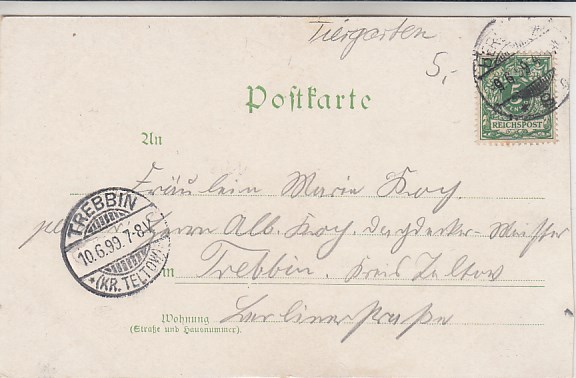 Tiergarten
5,-
Postkarte
5
REICHSPOST
9.6.
An
Fräulein Marie Koch
Herrn Alb. Koch. Dachdecker-Meister
in Trebbin. Kreis Teltow
Wohnung Berlinerstraße
(Straße und Hausnummer).
TREBBIN
10.6.99.7-8V.
*(KR. TELTOW)*